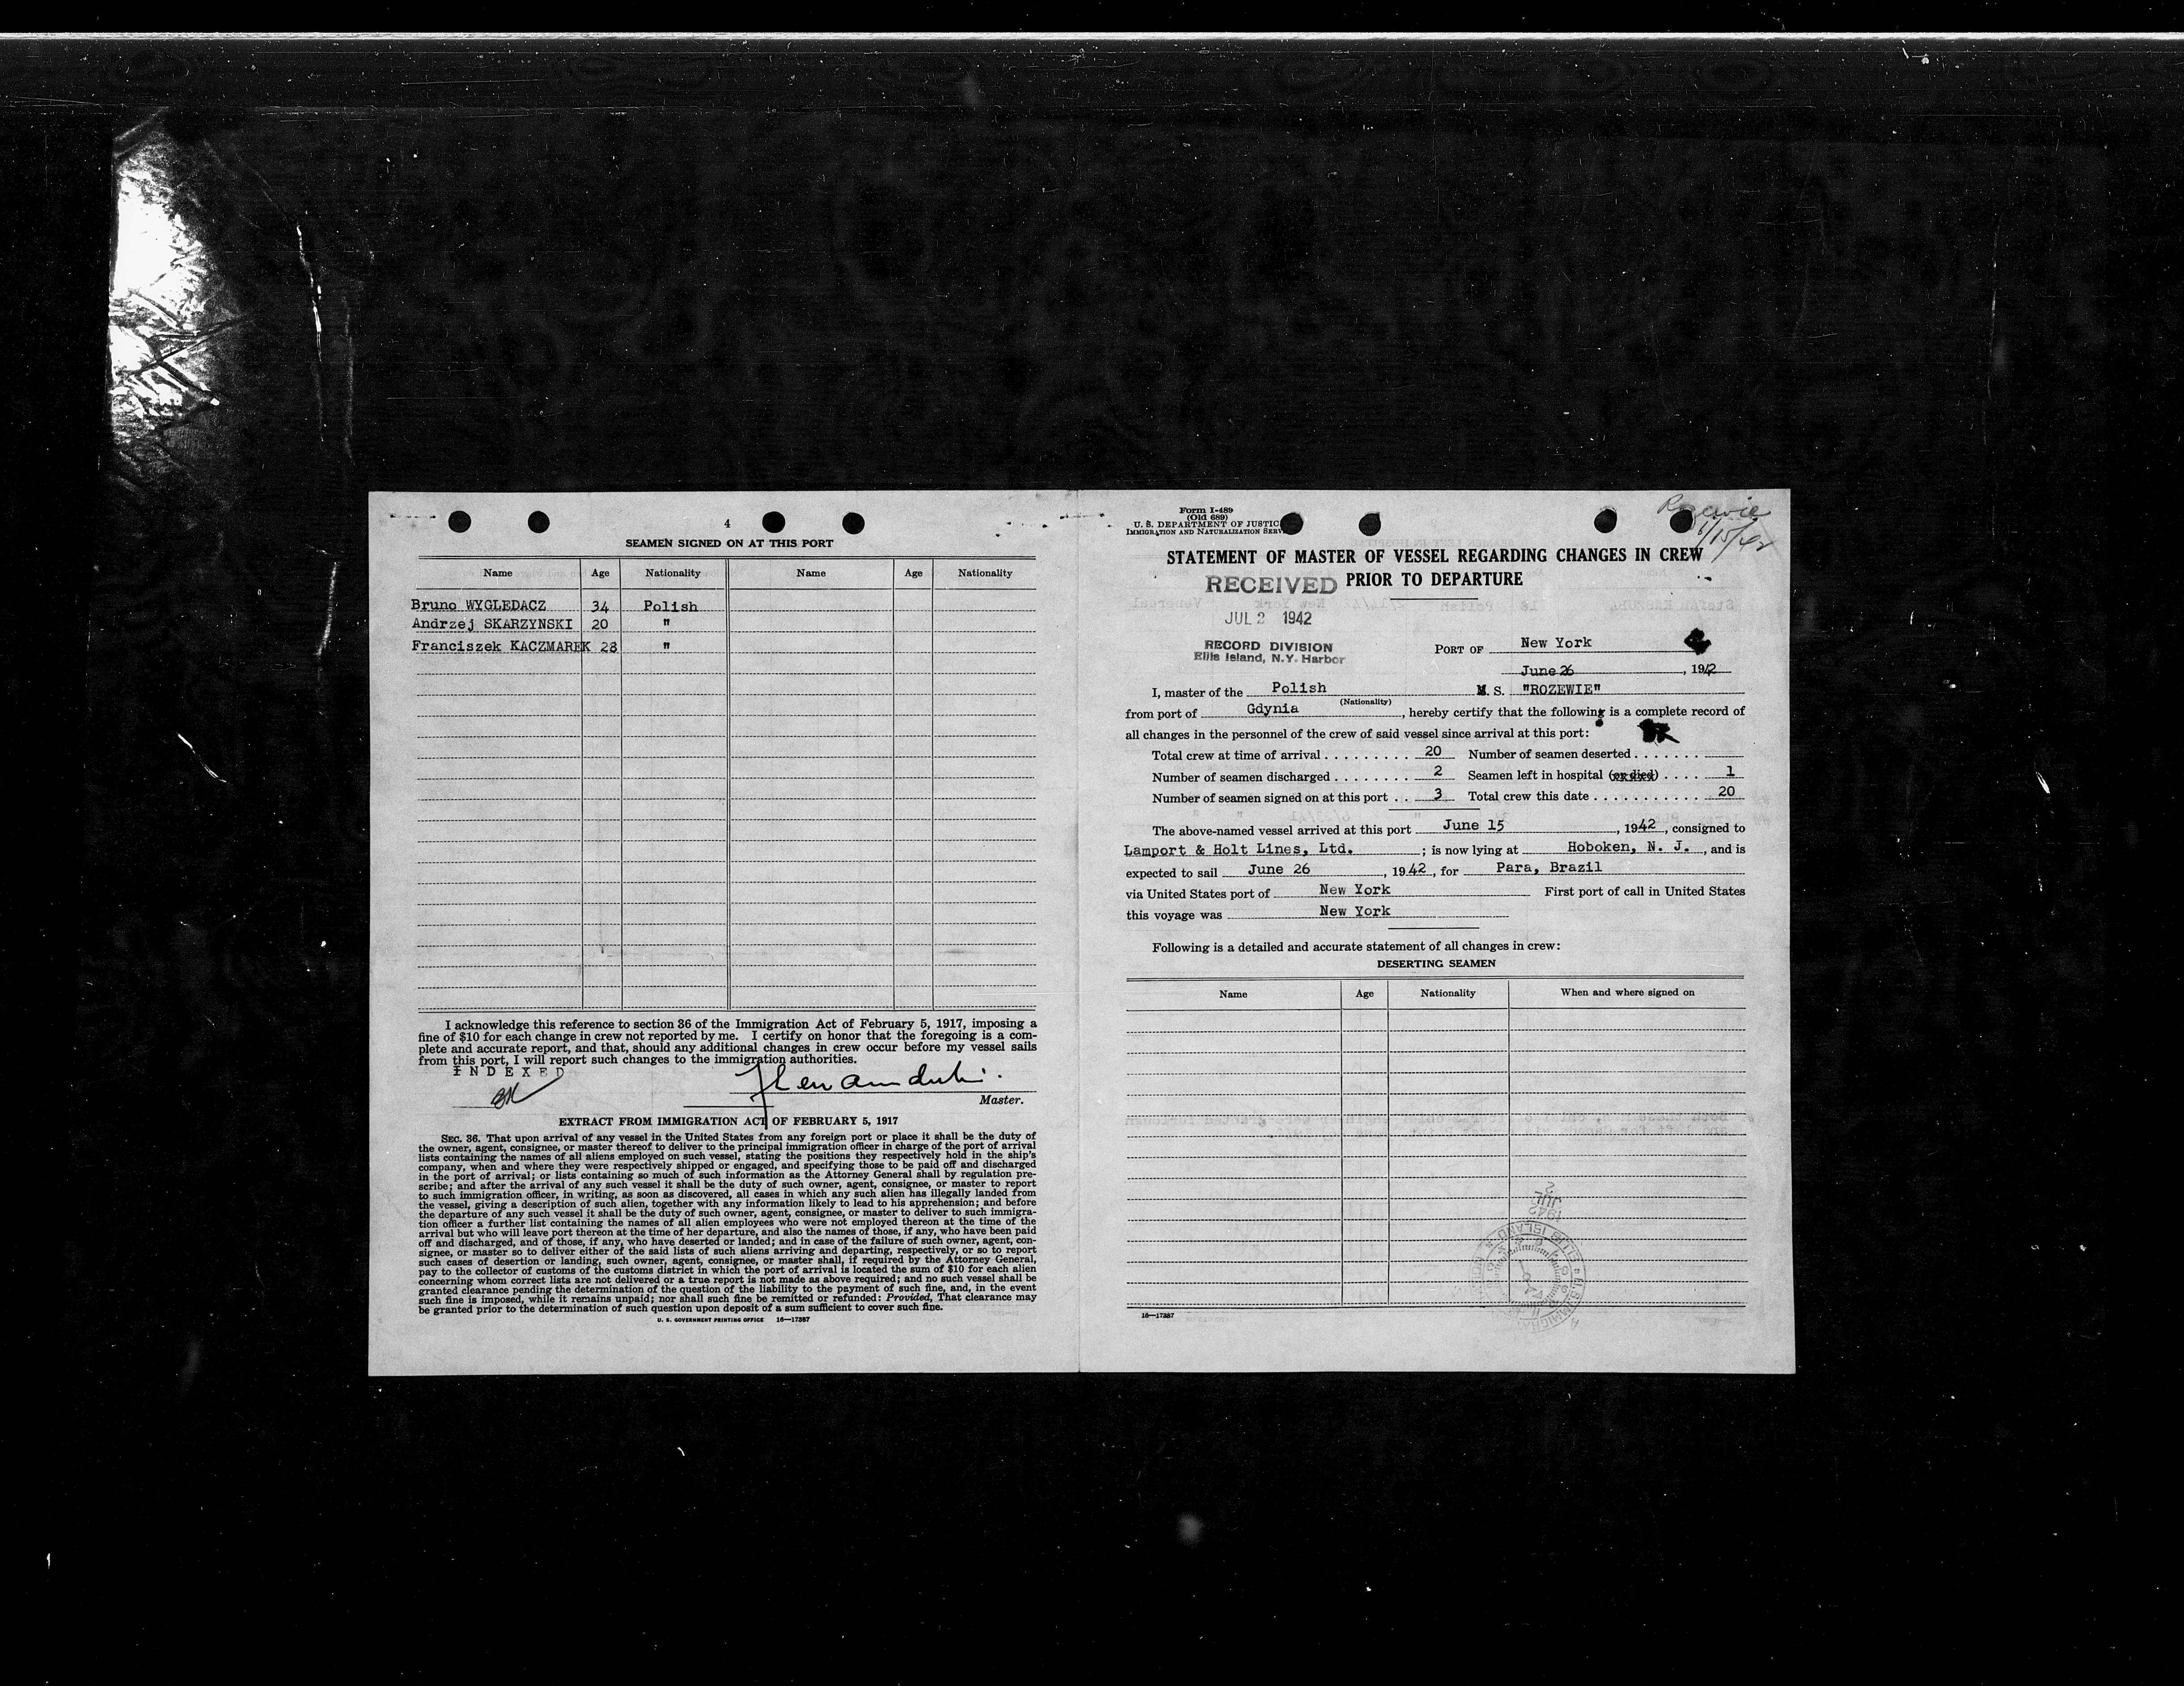 4
SEAMEN SIGNED ON AT THIS PORT
Name Age Nationality Name Age Nationality
Bruno WYGLEDACZ 34 Polish
Andrzej SKARZYNSKI 20 "
Franciszek KACZMAREK 28 "
I acknowledge this reference to section 36 of the Immigration Act of February 5, 1917, imposing a
fine of $10 for each change in crew not reported by me. I certify on honor that the foregoing is a com-
plete and accurate report, and that, should any additional changes in crew occur before my vessel sails
from this port, I will report such changes to the immigration authorities.
INDEXED
Master.
EXTRACT FROM IMMIGRATION ACT OF FEBRUARY 5, 1917
SEC. 36. That upon arrival of any vessel in the United States from any foreign port or place it shall be the duty of
the owner, agent, consignee, or master thereof to deliver to the principal immigration officer in charge of the port of arrival
lists containing the names of all aliens employed on such vessel, stating the positions they respectively hold in the ship's
company, when and where they were respectively shipped or engaged, and specifying those to be paid off and discharged
in the port of arrival; or lists containing so much of such information as the Attorney General shall by regulation pre-
scribe; and after the arrival of any such vessel it shall be the duty of such owner, agent, consignee, or master to report
to such immigration officer, in writing, as soon as discovered, all cases in which any such alien has illegally landed from
the vessel, giving a description of such alien, together with any information likely to lead to his apprehension; and before
the departure of any such vessel it shall be the duty of such owner, agent, consignee, or master to deliver to such immigra-
tion officer a further list containing the names of all alien employees who were not employed thereon at the time of the
arrival but who will leave port thereon at the time of her departure, and also the names of those, if any, who have been paid
off and discharged, and of those, if any, who have deserted or landed; and in case of the failure of such owner, agent, con-
signee, or master so to deliver either of the said lists of such aliens arriving and departing, respectively, or so to report
such cases of desertion or landing, such owner, agent, consignee, or master shall, if required by the Attorney General,
pay to the collector of customs of the customs district in which the port of arrival is located the sum of $10 for each alien
concerning whom correct lists are not delivered or a true report is not made as above required; and no such vessel shall be
granted clearance pending the determination of the question of the liability to the payment of such fine, and, in the event
such fine is imposed, while it remains unpaid; nor shall such fine be remitted or refunded: Provided, That clearance may
be granted prior to the determination of such question upon deposit of a sum sufficient to cover such fine.
U. S. GOVERNMENT PRINTING OFFICE 16—17387
Form I-489
(Old 689)
U. S. DEPARTMENT OF JUSTIC
IMMIGRATION AND NATURALIZATION SERV
Rozewie
6/15/42
STATEMENT OF MASTER OF VESSEL REGARDING CHANGES IN CREW
PRIOR TO DEPARTURE
RECEIVED
JUL 2 1942
RECORD DIVISION
Ellis Island, N.Y. Harbor
PORT OF New York
June 26, 1942
I, master of the Polish M. S. "ROZEWIE"
(Nationality)
from port of Gdynia, hereby certify that the following is a complete record of
all changes in the personnel of the crew of said vessel since arrival at this port:
Total crew at time of arrival . . . . . . . . . 20 Number of seamen deserted . . . . . . .
Number of seamen discharged . . . . . . . . 2 Seamen left in hospital (or died) . . . . 1
Number of seamen signed on at this port . . 3 Total crew this date . . . . . . . . . . . 20
The above-named vessel arrived at this port June 15, 1942, consigned to
Lamport & Holt Lines, Ltd. ; is now lying at Hoboken, N. J., and is
expected to sail June 26, 1942, for Para, Brazil
via United States port of New York First port of call in United States
this voyage was New York
Following is a detailed and accurate statement of all changes in crew:
DESERTING SEAMEN
Name Age Nationality When and where signed on
16—17387